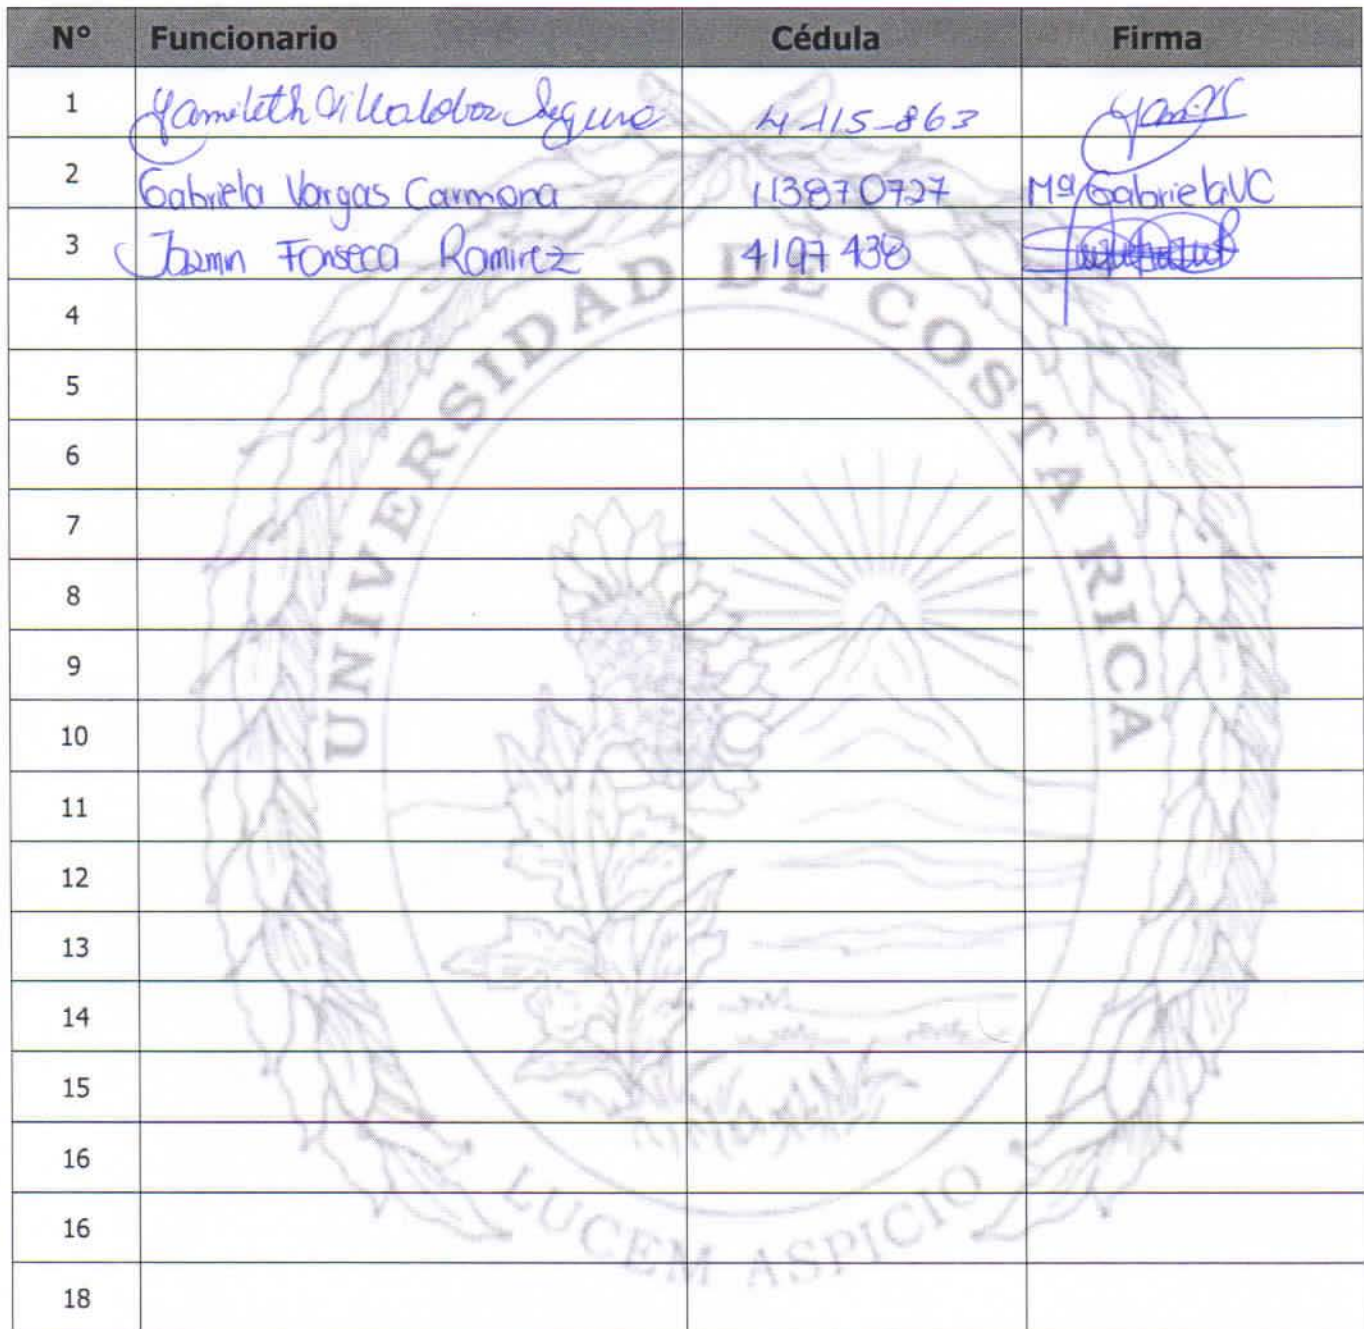 N° Funcionario Cédula Firma
1 Yamileth Villalobos Segura 4-115-863
2 Gabriela Vargas Carmona 113870727 Mª Gabriela VC
3 Jazmin Fonseca Ramirez 4197438
4
5
6
7
8
9
10
11
12
13
14
15
16
16
18
UNIVERSIDAD DE COSTA RICA
LUCEM ASPICIO